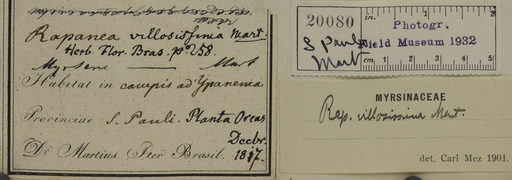 Rapanea villosissima Mart.
Herb. Flor. Bras. p. 258
Myrsine Mart
Habitat in campis ad Ypanema
Provinciae S. Pauli. Planta Orcas
Decbr.
Dr. Martius Iter Brasil. 1817.
20080
in. 1 2
Photogr.
Field Museum 1932
S Paulo
Mart
cm. 1 2 3 4 5
MYRSINACEAE
Rap. villosissima Mart.
det. Carl Mez 1901.